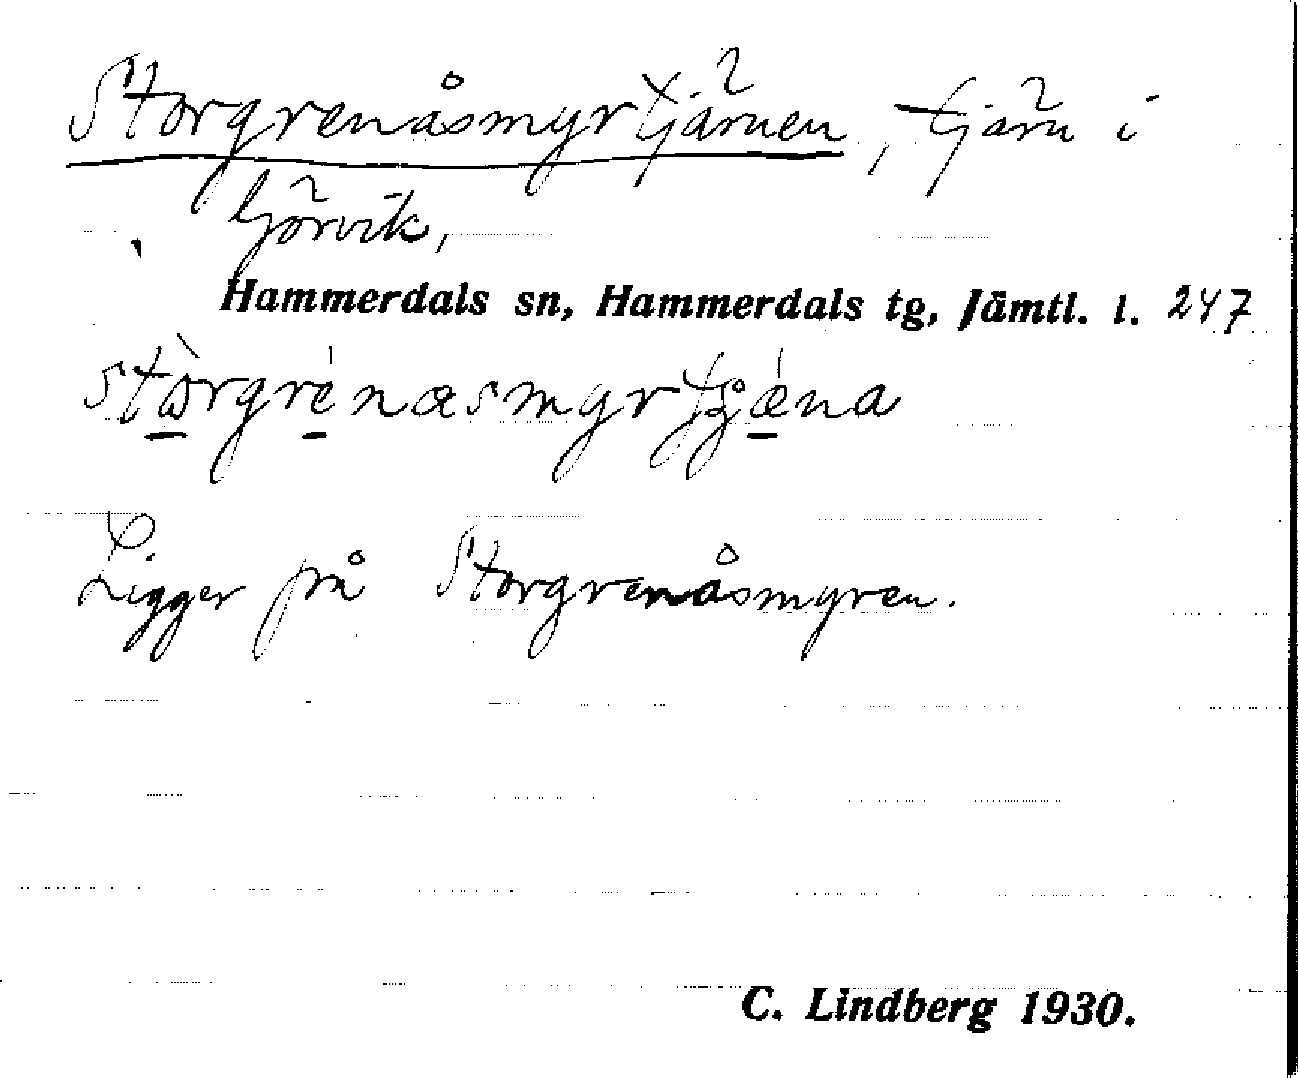 Storgrenåsmyrtjärnen, tjärn i
Görvik,
Hammerdals sn, Hammerdals tg, Jämtl. l. 247
Ligger på Storgrenåsmyren.
C. Lindberg 1930.